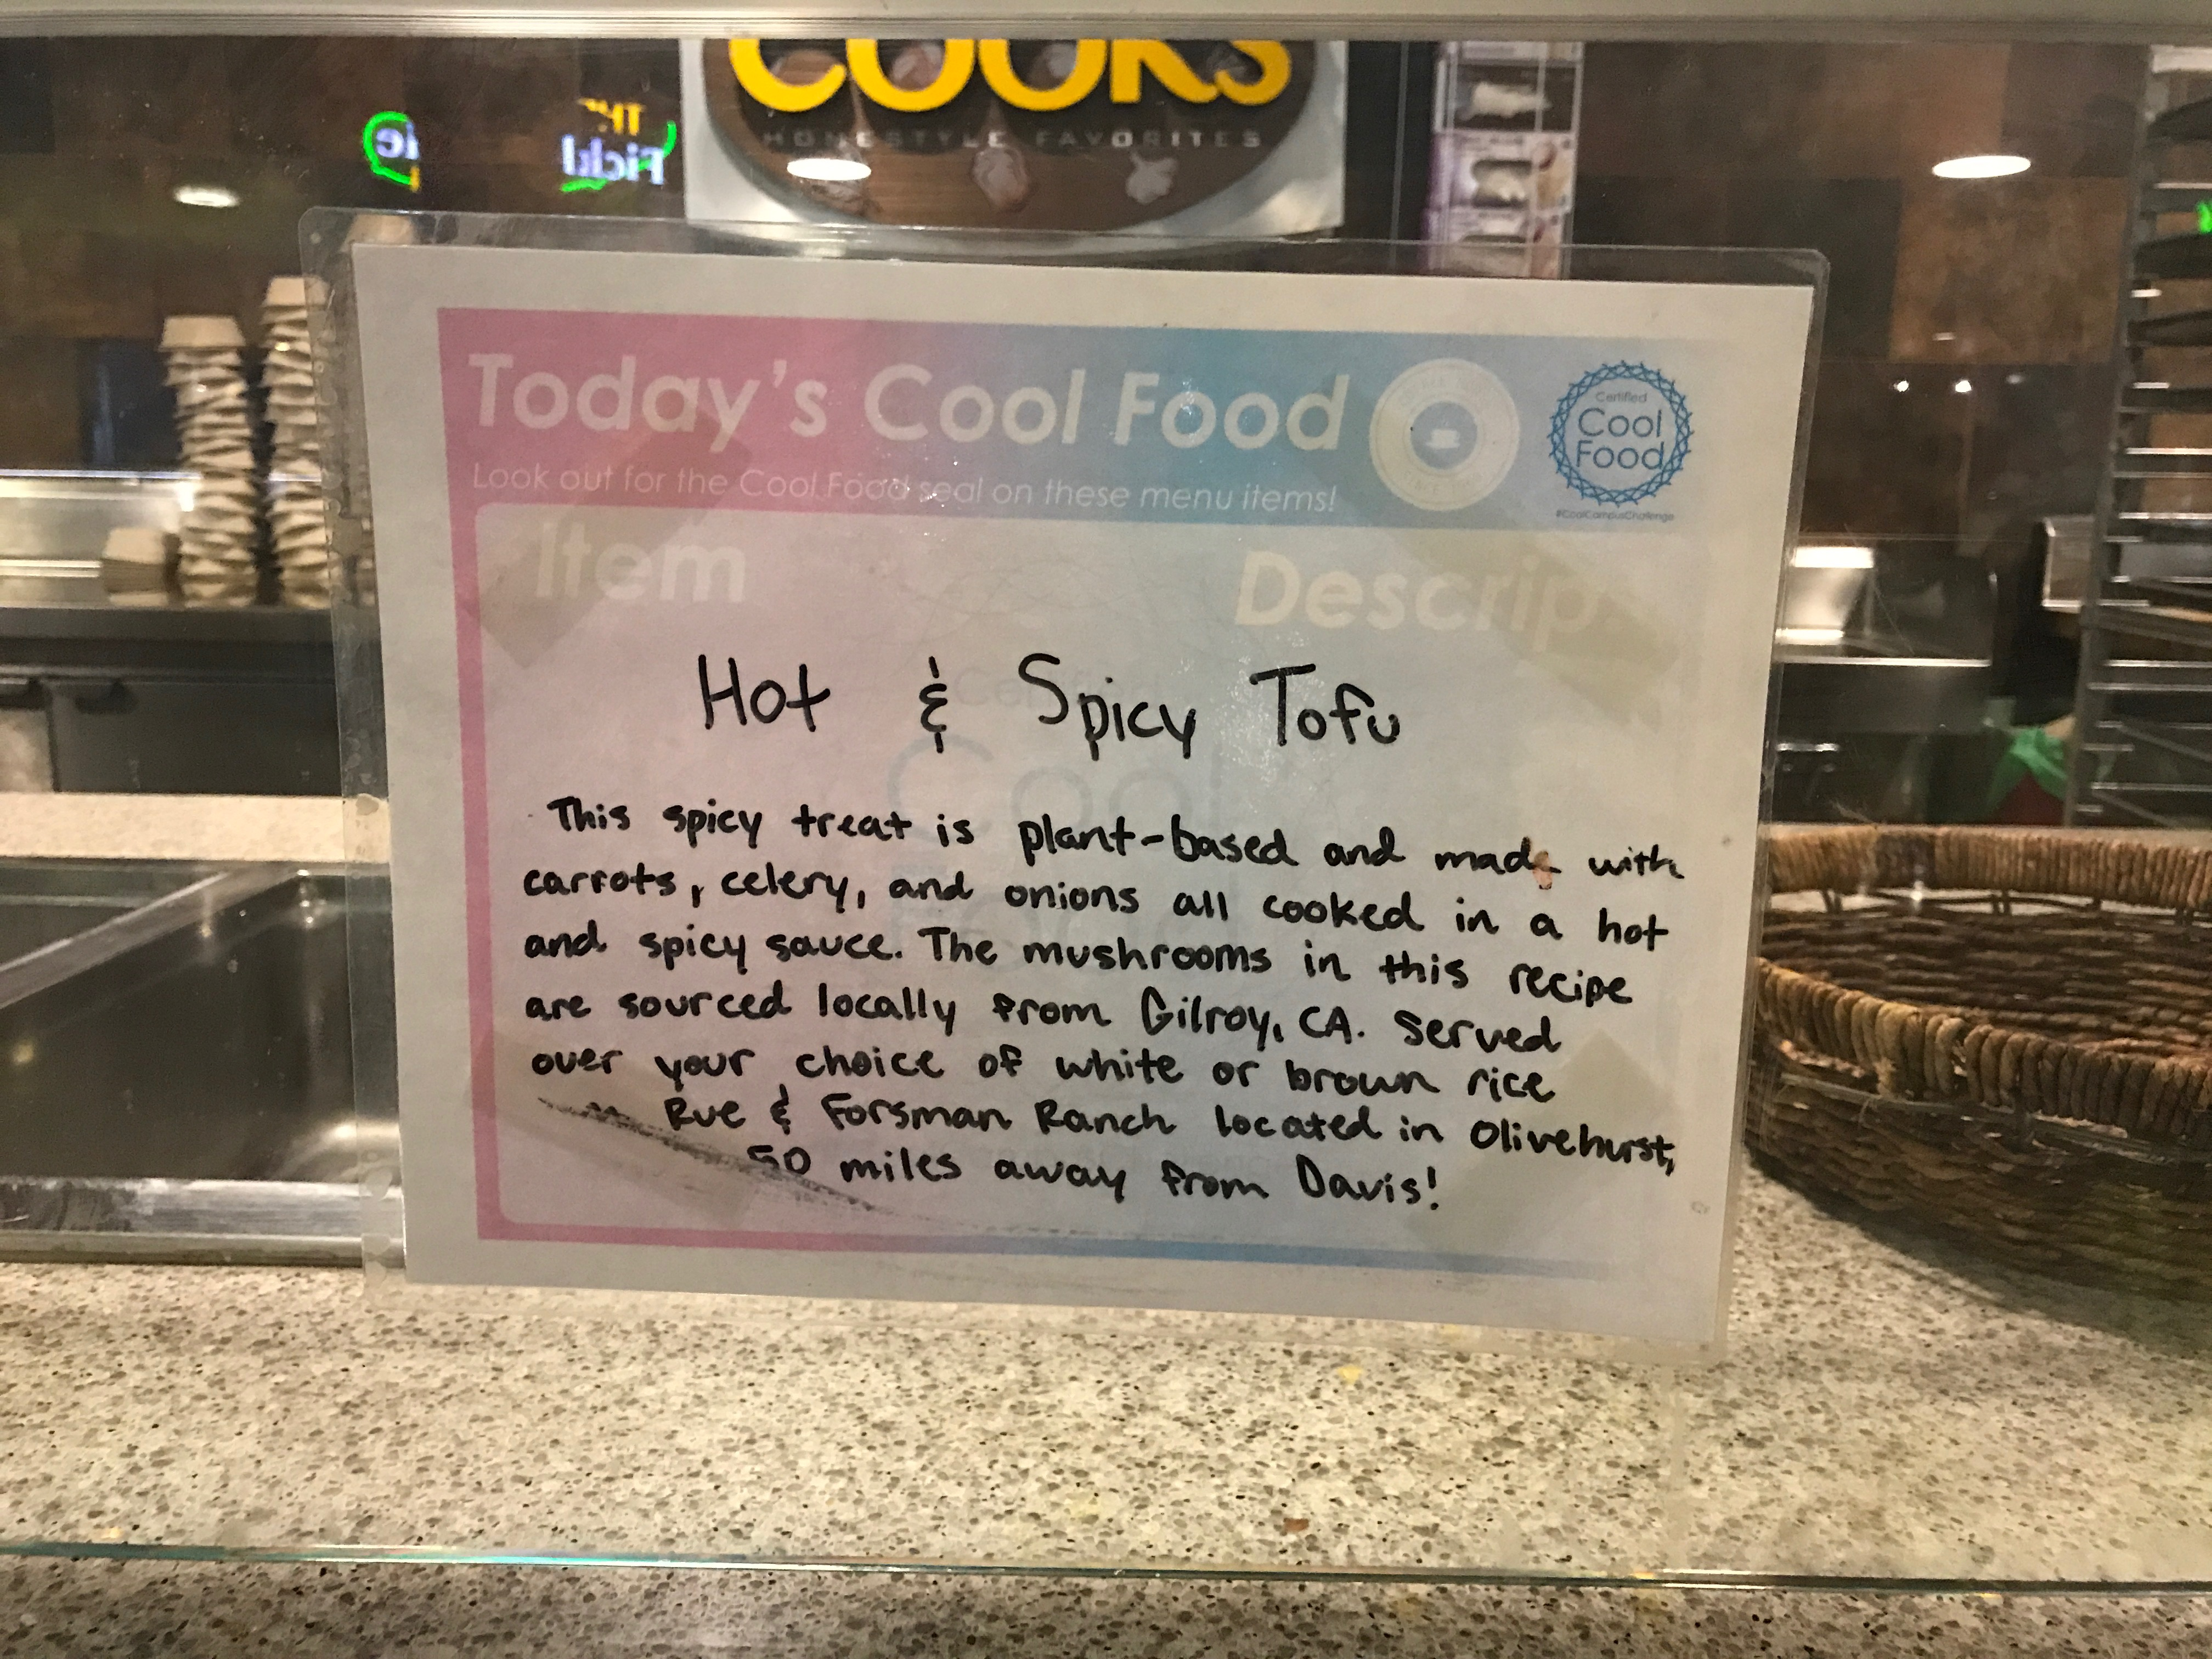 COOKS
HOMESTYLE FAVORITES
Today's Cool Food
Look out for the Cool Food seal on these menu items!
Certified
Cool
Food
#CoolCampusChallenge
Item
Descrip
Hot & Spicy Tofu
This spicy treat is plant-based and made with
carrots, celery, and onions all cooked in a hot
and spicy sauce. The mushrooms in this recipe
are sourced locally from Gilroy, CA. Served
over your choice of white or brown rice
Rue & Forsman Ranch located in Olivehurst,
50 miles away from Davis!